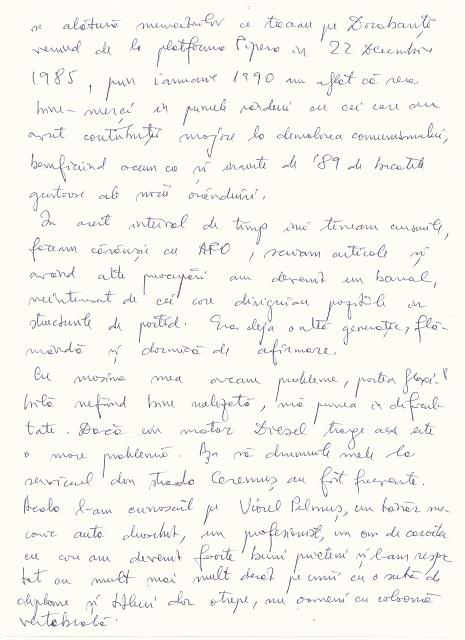 se alătură muncitorilor ce treceau pe Dorobanți
venind de la platforma Pipera in 22 Decembrie
1985, prin ianuarie 1990 am aflat că era
bine-merci in primele rânduri cu cei care au
avut contribuții majore la demolarea comunismului,
beneficiind acum ca și inainte de '89 de bucatele
gustoase ale noii orânduiri.
In acest interval de timp imi tineam cursurile,
faceam cărăușii cu ARO, scriam articole și
avand alte preocupări am devenit un banal,
neinteresat de cei care dirijau posturile in
structurile de partid. Era deja o altă generație, flă-
mândă și dornică de afirmare.
Cu mașina mea aveam probleme, partea flexi-
bilă nefiind bine realizată, mă punea in dificul-
tate. Dacă un motor Diesel trage aer este
o mare problemă. Așa că drumurile mele la
serviciul din strada Ceremuș au fost frecvente.
Acolo l-am cunoscut pe Viorel Pelmuș, un tânăr me-
canic auto deschis, un profesionist, un om de caracter
cu care am devenit foarte buni prieteni și l-am respec-
tat cu mult mai mult decat pe unii cu o sută de
diplome și titluri dar otrepe, nu oameni cu coloană
vertebrală.